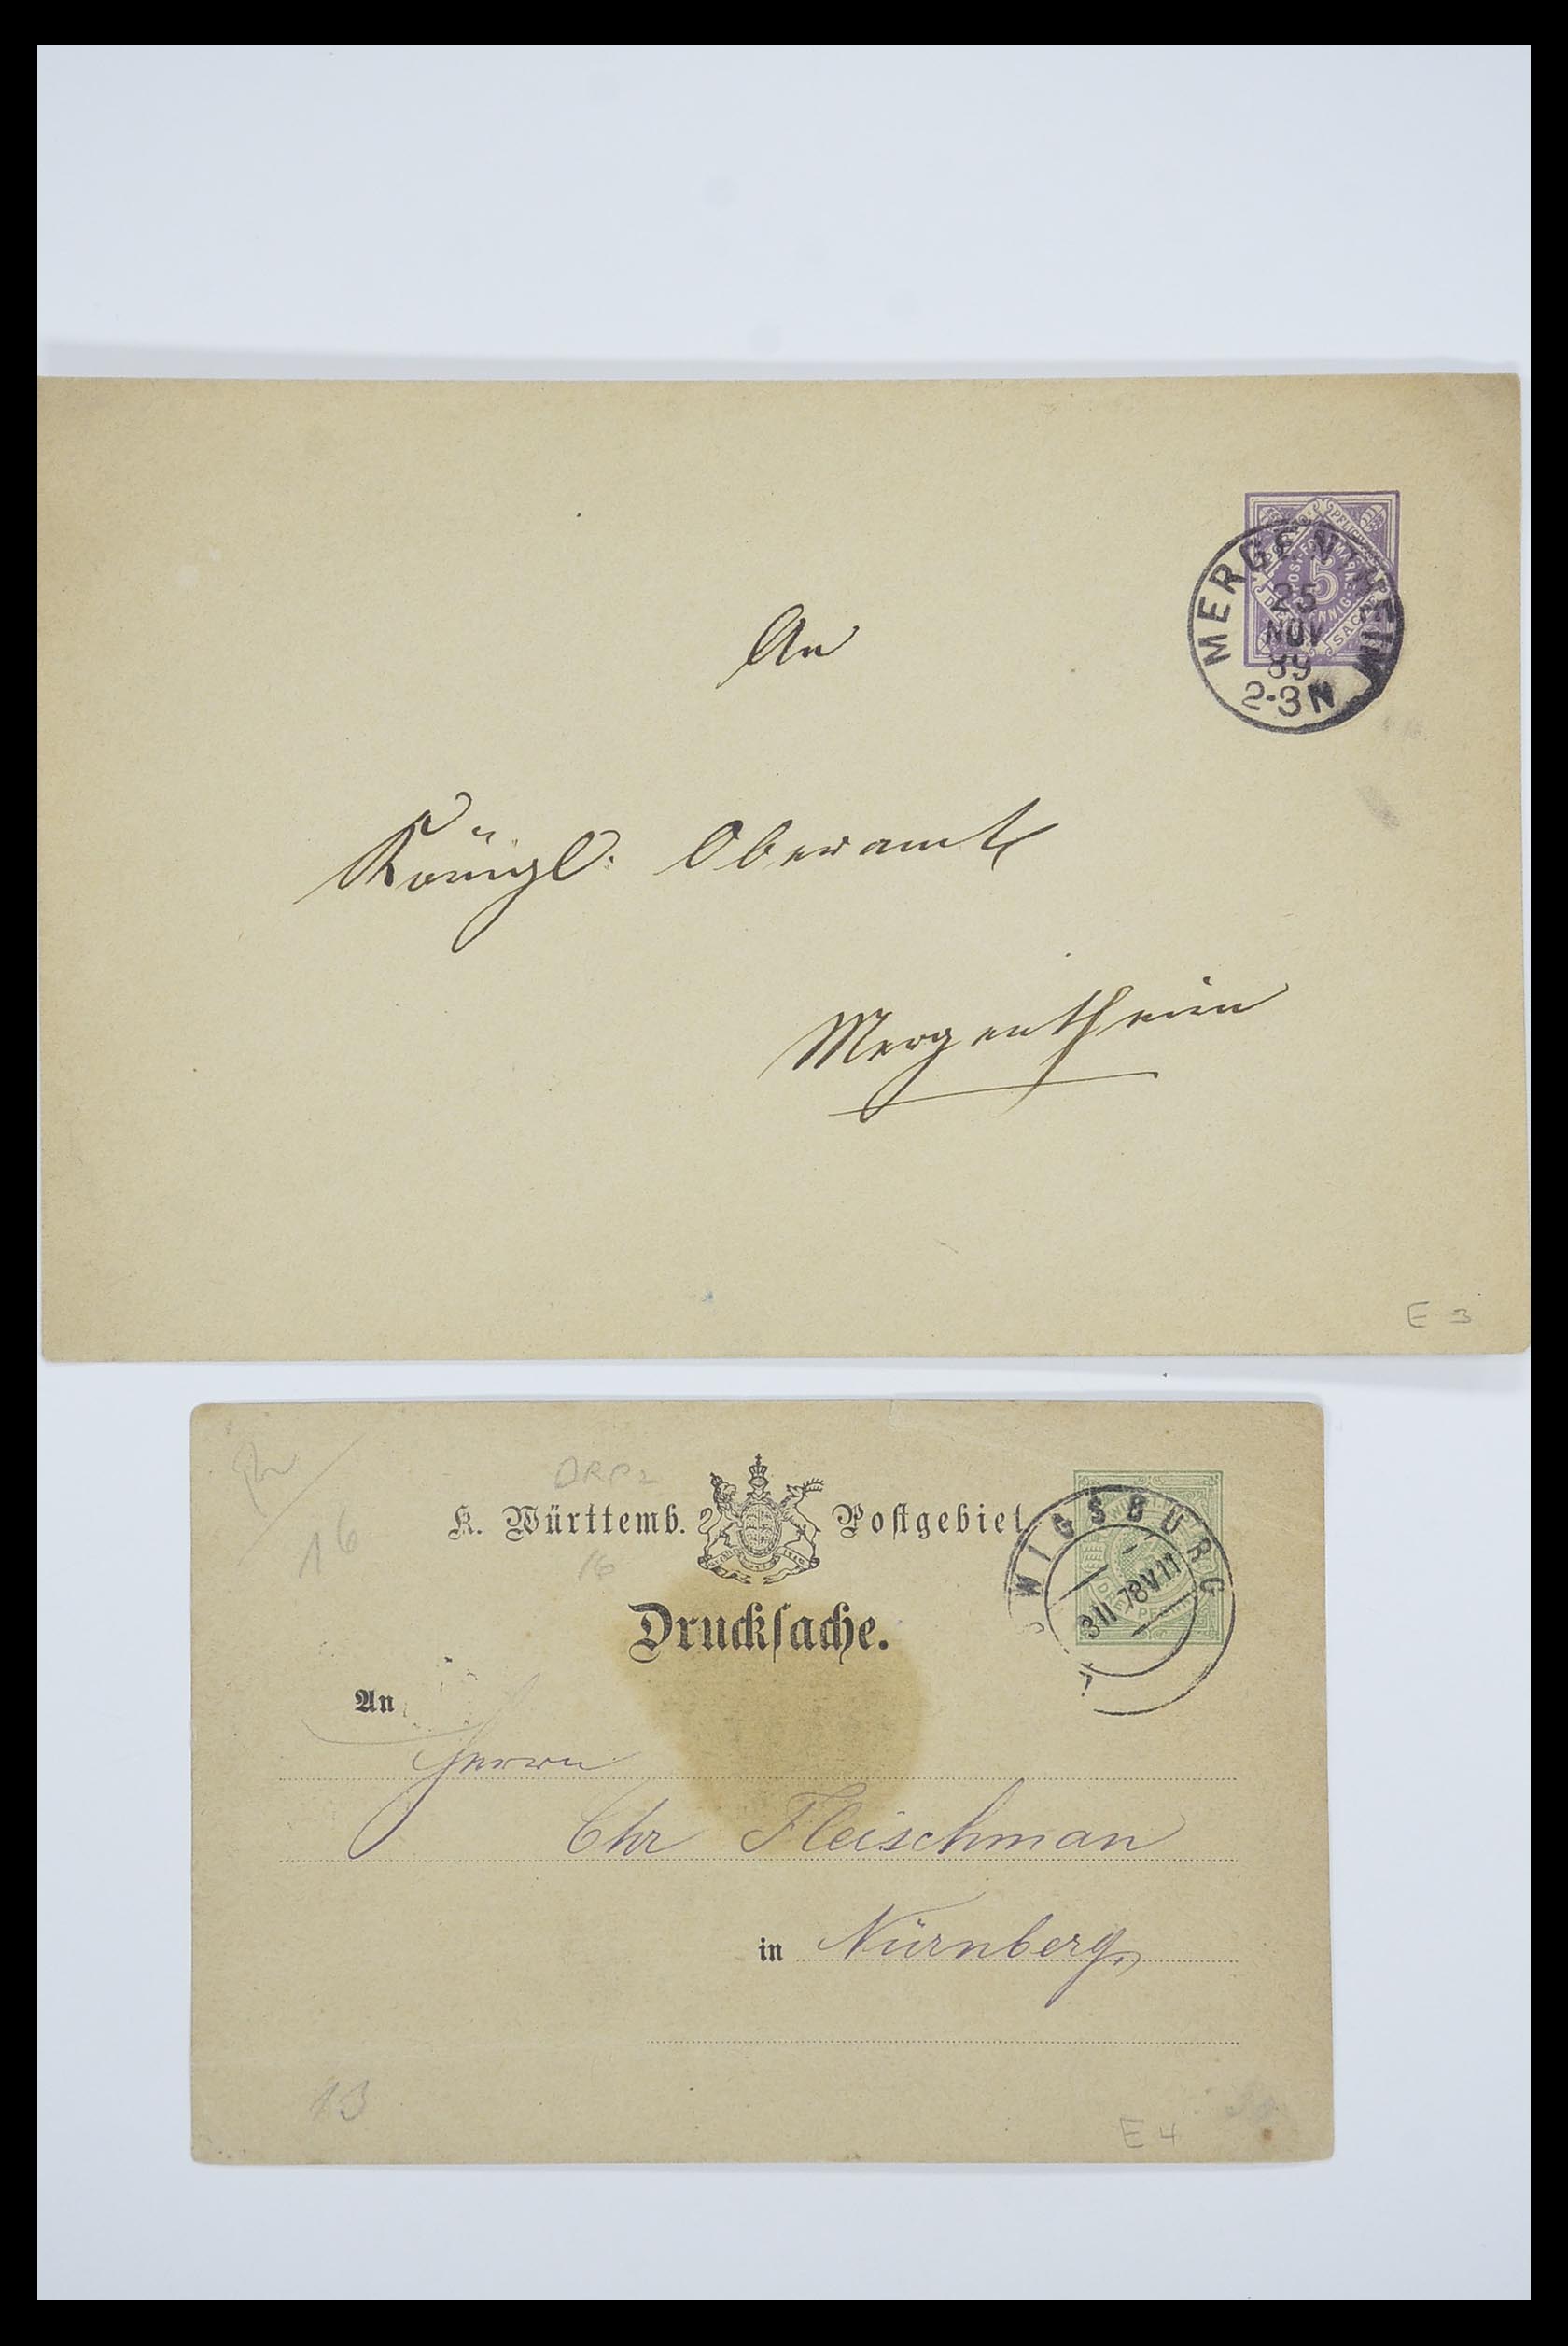 MERGENTHEIM
25
NOV
89
2-3 N
5
An
Königl. Oberamt
Mergentheim
E 3
DRP 2
16
K. Württemb. Postgebiet
16
WIGSBURG
3 II 78 V 11
DREI PFENNIG
Drucksache.
An
Herrn
Chr Fleischman
in Nürnberg,
13
E 4